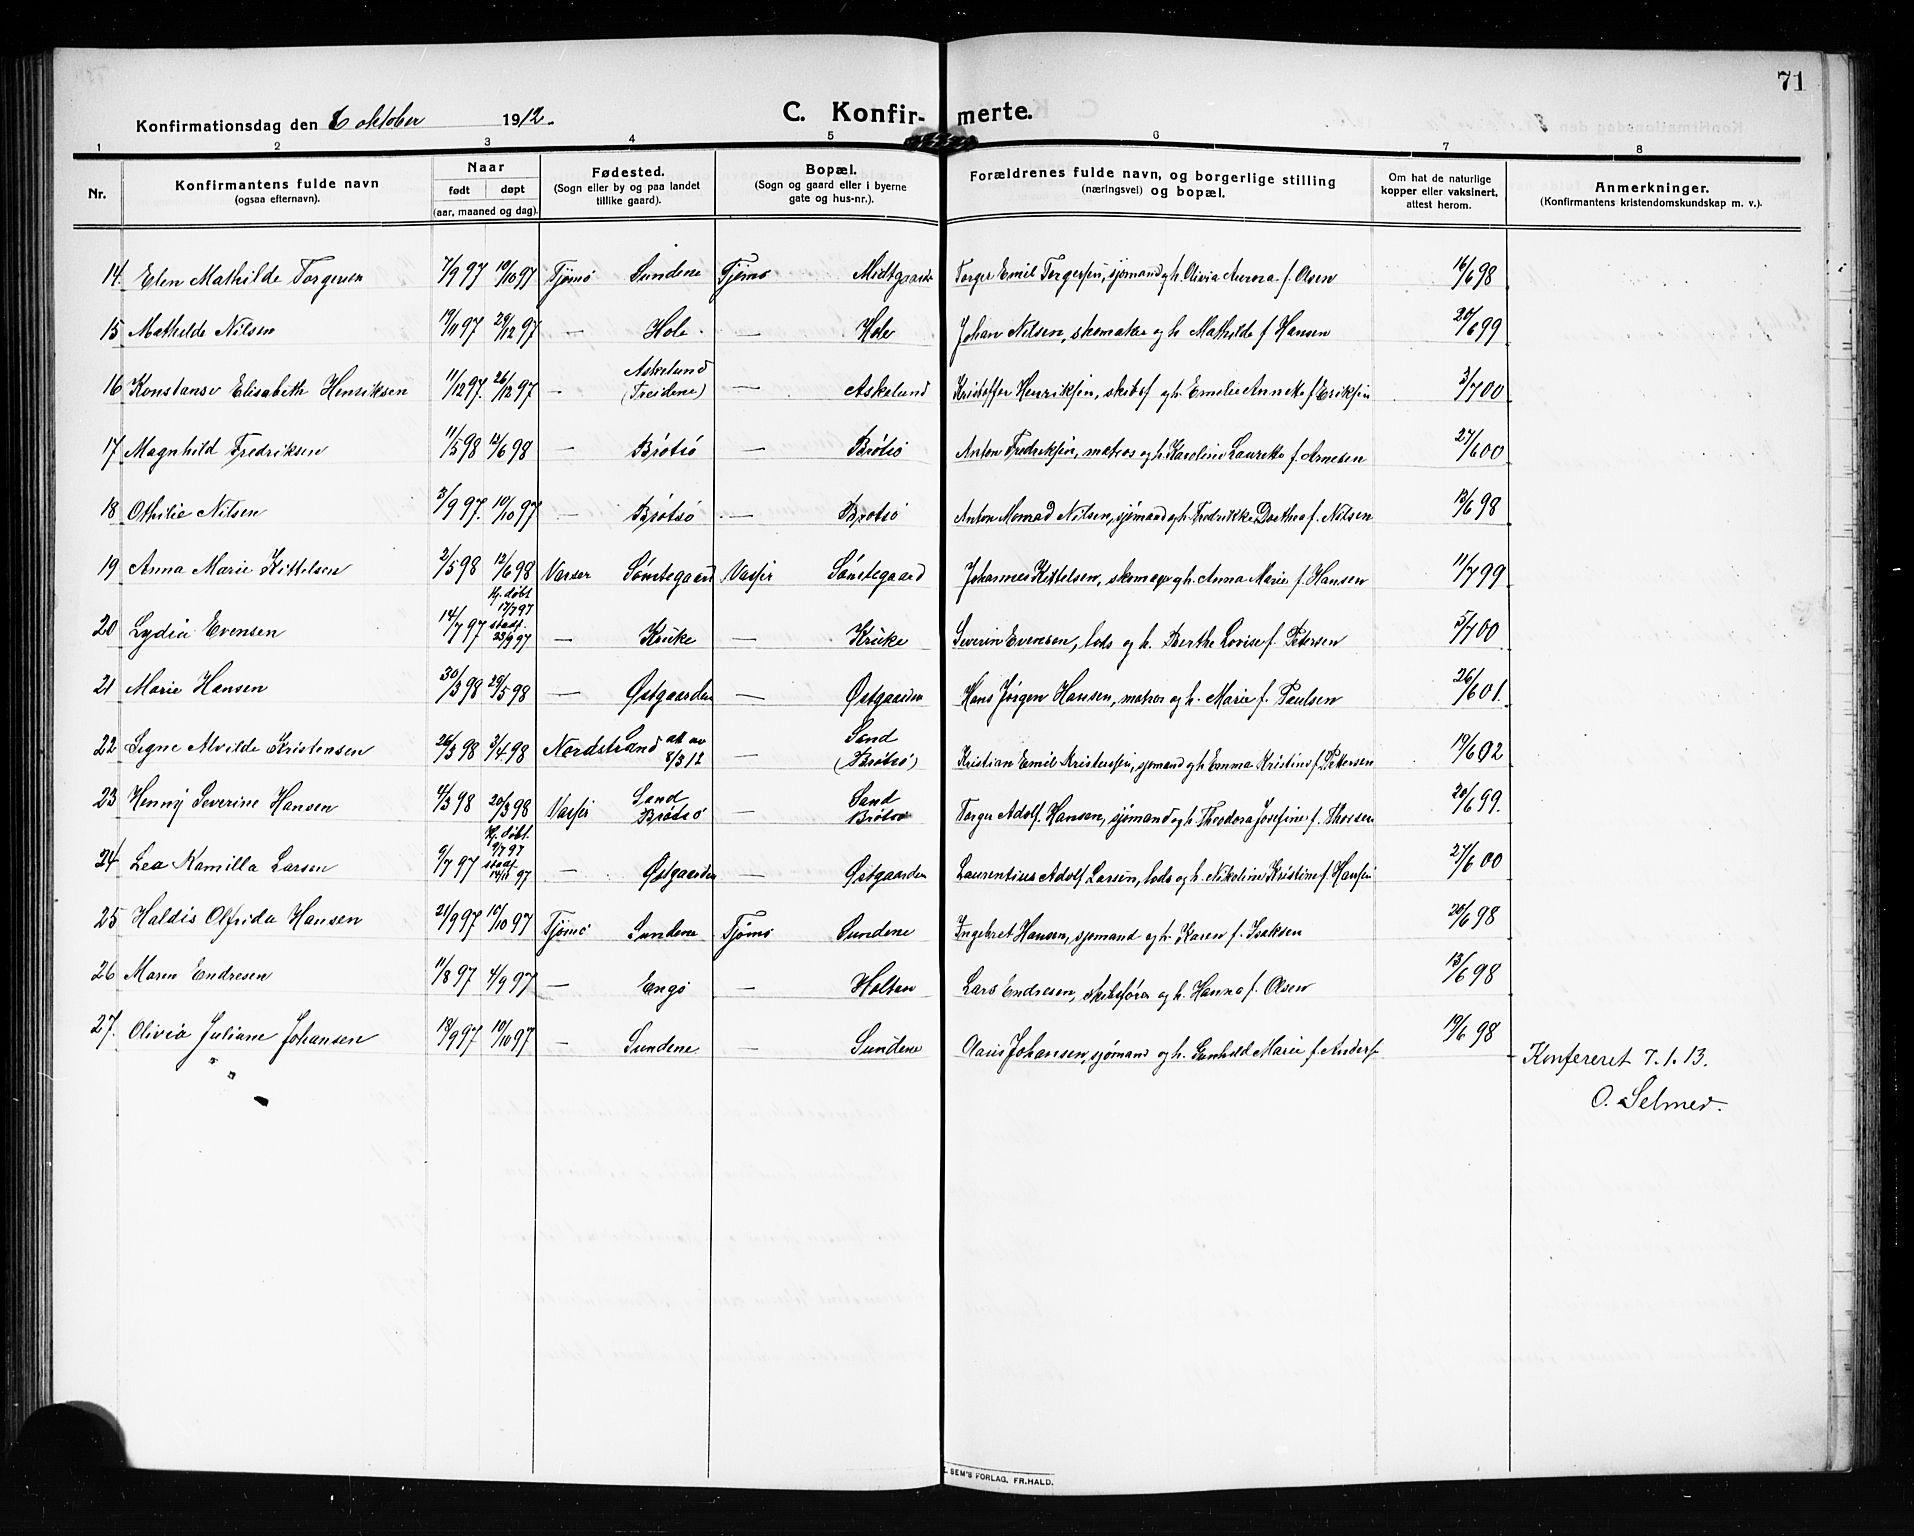 71
Konfirmationsdag den 6 oktober 1912. C. Konfirmerte.
1 2 3 4 5 6 7 8
Nr. Konfirmantens fulde navn (ogsaa efternavn). Naar født døpt (aar, maaned og dag). Fødested. (Sogn eller by og paa landet tillike gaard). Bopæl. (Sogn og gaard eller i byerne gate og hus-nr.). Forældrenes fulde navn, og borgerlige stilling (næringsvei) og bopæl. Om hat de naturlige kopper eller vaksinert, attest herom. Anmerkninger. (Konfirmantens kristendomskundskap m. v.).
14. Elen Mathilde Torgersen 7/9 97 10/10 97 Tjømø Sundene Tjømø Midtgaarden Torger Emil Torgersen, sjømand og h. Olivia Aurora f. Olsen 16/6 98
15 Mathilde Nilsen 19/11 97 29/12 97 — Hole — Hole Johan Nilsen, skomaker og h. Mathilde f Hansen 20/6 99
16 Konstanse Elisabeth Henriksen 11/12 97. 26/12 97 — Askelund (Treidene) — Askelund Kristoffer Henriksen, skibsf og h. Emelie Annette f Eriksen 3/7 00
17 Magnhild Fredriksen 11/5 98 12/6 98 — Brøtsø — Brøtsø Anton Fredriksen, matros og h. Karoline Laurette f. Arnesen 27/6 00
18 Othilie Nilsen 3/9 97. 10/10 97 — Brøtsø — Brøtsø Anton Monrad Nilsen, sjømand og h. Fredrikke Dorthea f. Nilsen 13/6 98
19 Anna Marie Kittelsen 2/5 98 12/6 98 Vasser Sønstegaard Vasser Sønstegaard Johannes Kittelsen, skomager og h. Anna Marie f. Hansen 11/7 99
20 Lydia Evensen 14/7 97 Hj. døbt 17/7 97 stadf. 23/9 97 — Kruke — Kruke Severin Evensen, lods og h. Berthe Lovise f. Petersen 5/7 00
21 Marie Hansen 30/3 98 29/5 98 — Østgaarden — Østgaarden Hans Jørgen Hansen, matros og h. Marie f. Paulsen 26/6 01.
22 Signe Alvilde Kristensen 26/3 98 3/4 98 Nordstrand att av 8/3 12 — Sand (Brøtsø) Kristian Emil Kristensen, sjømand og h. Emma Kristine f. Pettersen 19/6 02
23 Henny Severine Hansen 4/3 98 20/3 98 Vasser Sand Brøtsø — Sand Brøtsø Torger Adolf Hansen, sjømand og h. Theodora Josefine f. Thorsen 20/6 99.
24 Lea Kamilla Larsen 9/7 97 Hj. døbt 9/7 97 stadf. 14/11 97 — Østgaarden — Østgaarden Laurentius Adolf Larsen, lods og h. Nikoline Kristine f. Hansen 27/6 00
25 Haldis Olfrida Hansen 21/9 97 10/10 97 Tjømø Sundene Tjømø Sundene Ingebret Hansen, sjømand og h. Karen f. Isaksen 20/6 98
26 Maren Endresen 11/8 97 4/9 97 — Engø — Holten Lars Endresen, skibsfører og h. Hanna f. Olsen 13/6 98
27. Olivia Juliane Johansen 18/9 97 10/10 97 — Sundene — Sundene Claus Johansen, sjømand og h. Gunhild Marie f. Anders 19/6 98
Konfereret 7.1.13.
O. Selmer.
SEM'S FORLAG, FR.HALD.